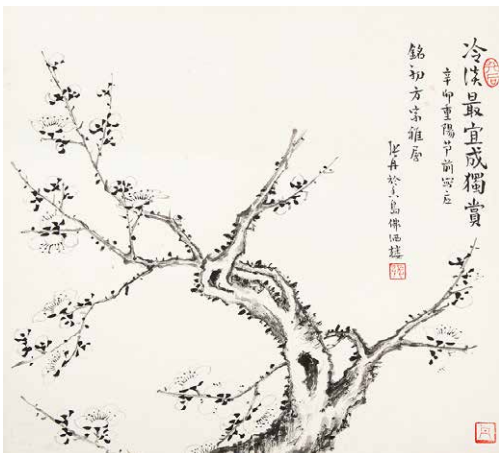 冷淡最宜成獨賞
辛卯重陽節前寫應
銘初方家雅屬
張丹於香島佛樓